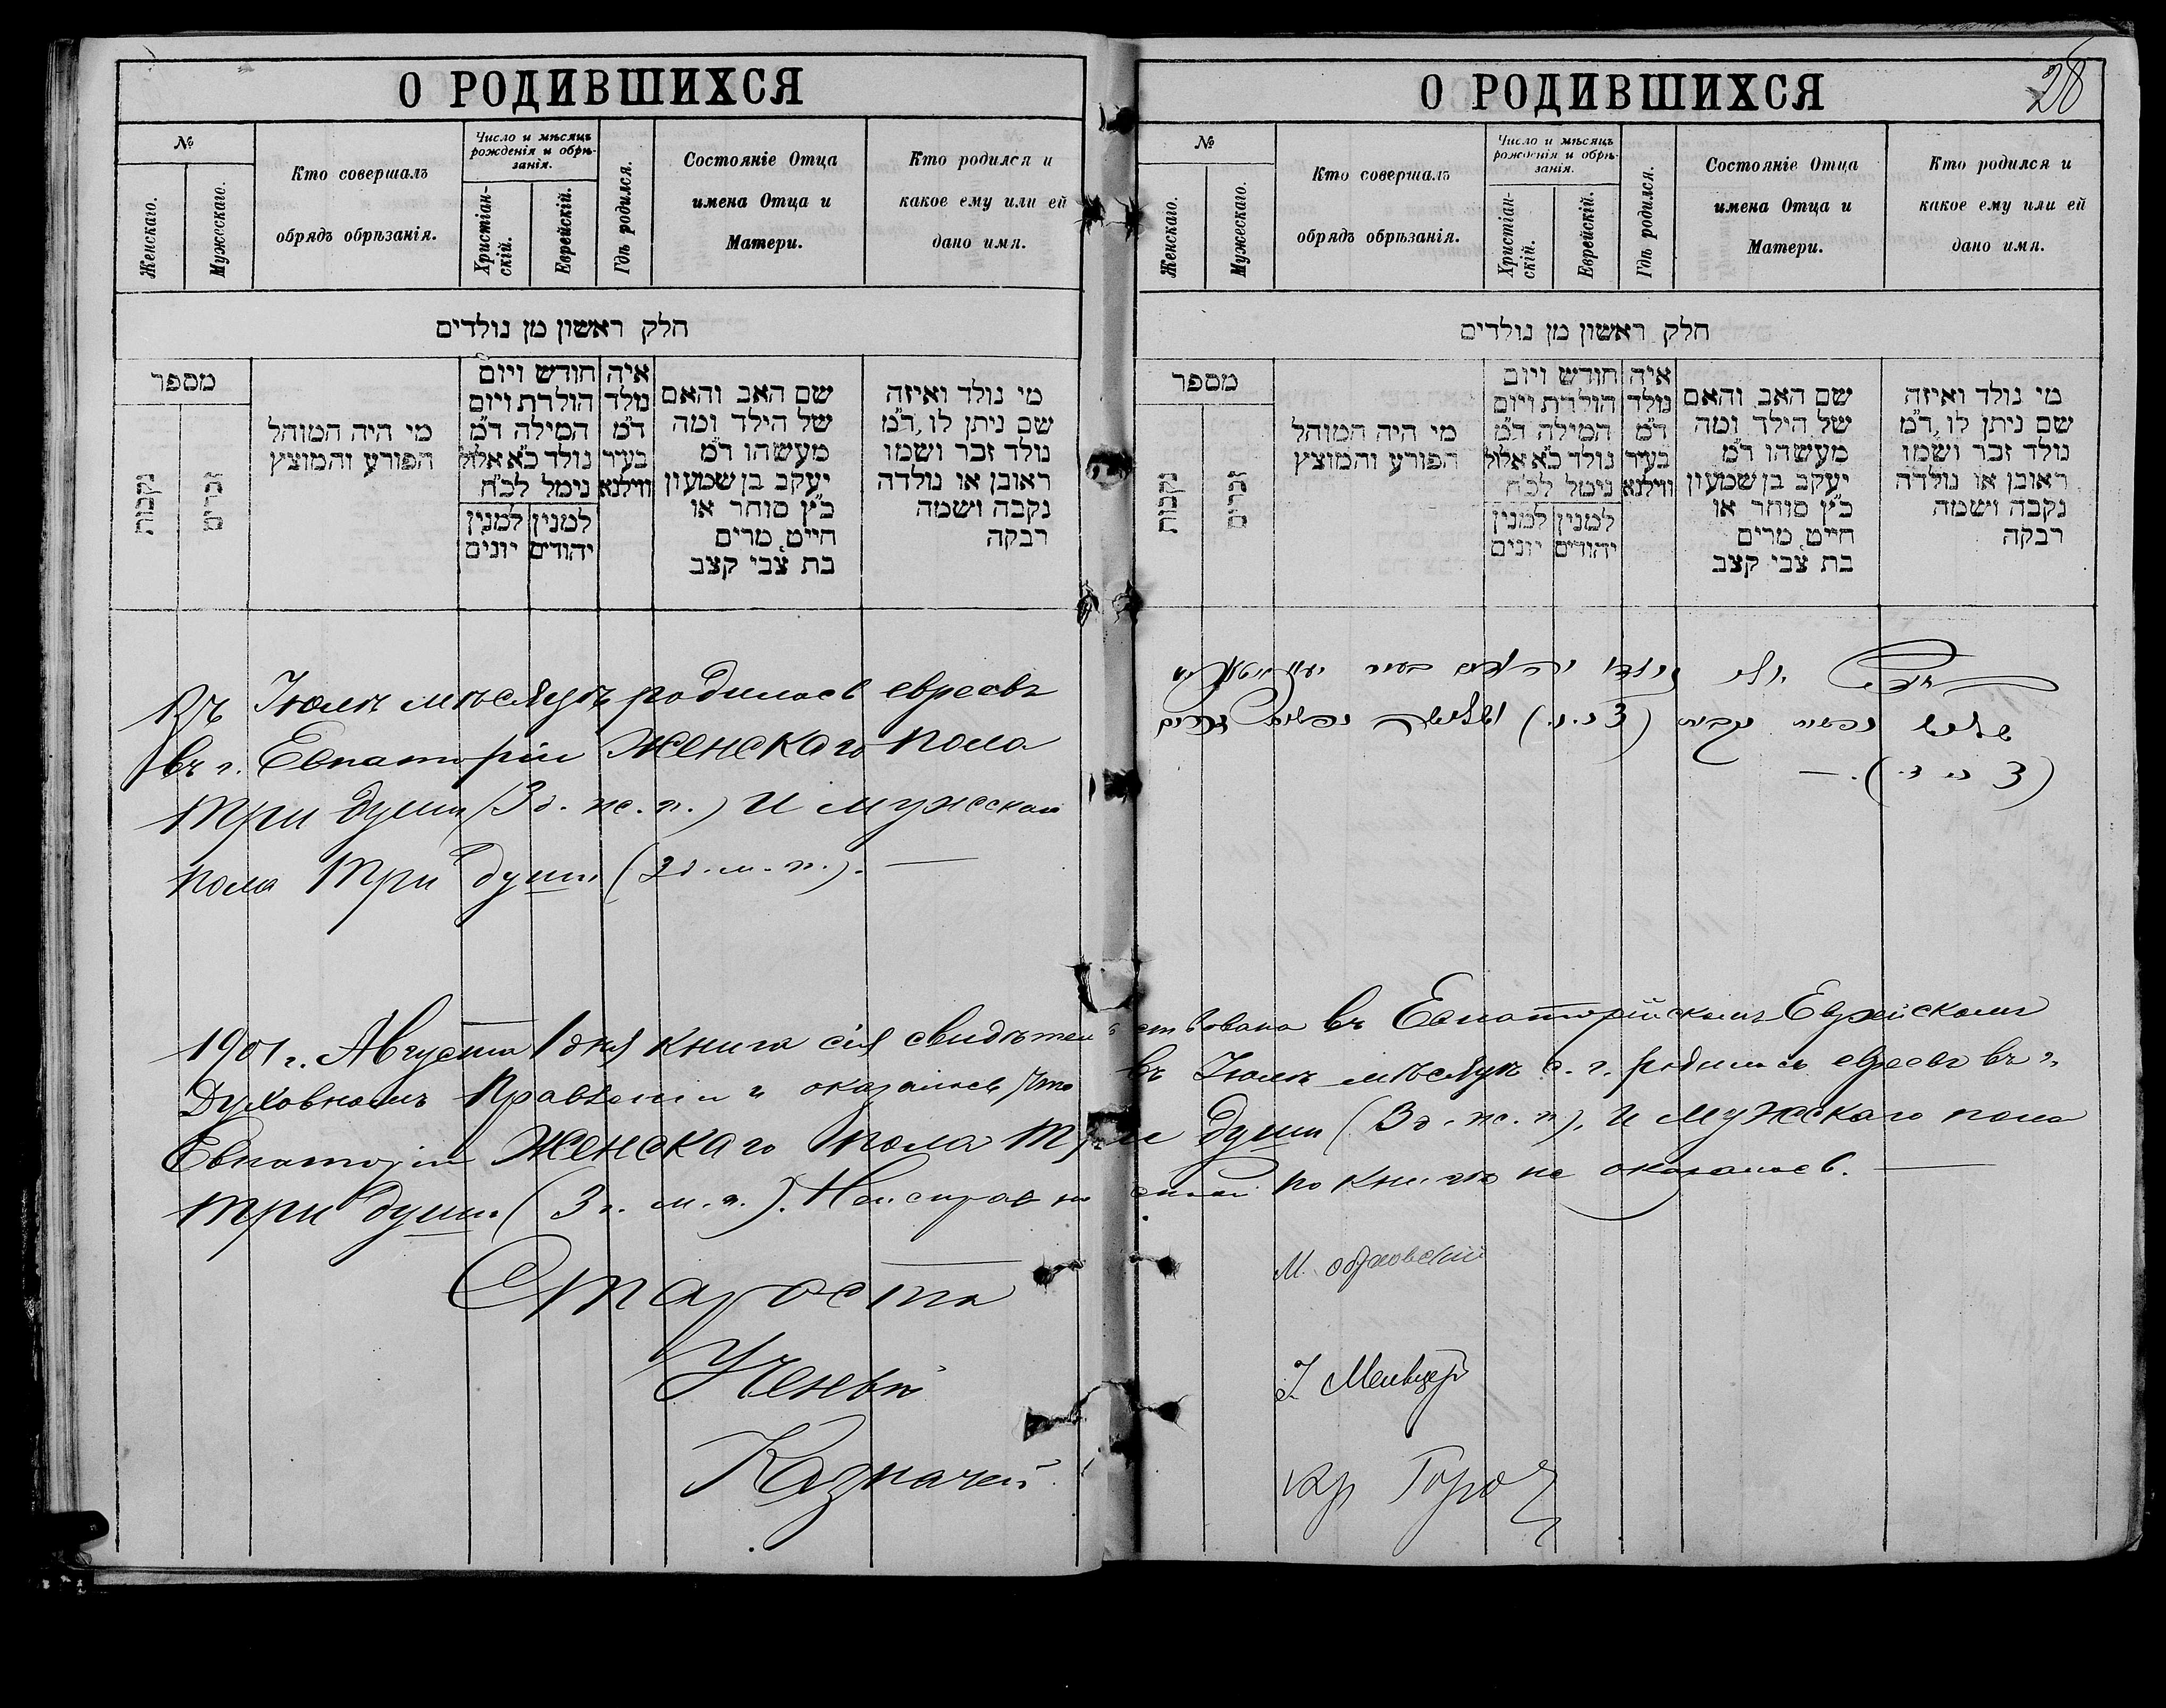 О РОДИВШИХСЯ
№
Женскаго.
Мужескаго.
Кто совершалъ
обрядъ обрѣзанія.
Число и мѣсяцъ
рожденія и обрѣ-
занія.
Христіан-
скій.
Еврейскій.
Гдѣ родился.
Состояніе Отца
имена Отца и
Матери.
Кто родился и
какое ему или ей
дано имя.
חלק ראשון מן נולדים
מספר
נקבות
זכרים
מי היה המוהל
הפורע והמוצץ
חודש ויום
הולדת ויום
המילה ד״מ
נולד כ״א אלול
נימל לכ״ח
למנין למנין
יהודים יונים
איה
נולד
ד״מ
בעיר
ווילנא
שם האב והאם
של הילד ומה
מעשהו ד״מ
יעקב בן שמעון
כ״ץ סוחר או
חייט, מרים
בת צבי קצב
מי נולד ואיזה
שם ניתן לו, ד״מ
נולד זכר ושמו
ראובן או נולדה
נקבה ושמה
רבקה
Въ Іюлѣ мѣсяцѣ родилось евреевъ
въ г. Евпаторіи Женскаго пола
три души (3 д. ж. п.) и мужескаго
пола три души (3 д. м. п.). —
1901 г. Августа 1 дня книга сія свидѣтельствована въ Евпаторійскомъ Еврейскомъ
Духовномъ Правленіи и оказалось что въ Іюлѣ мѣсяцѣ с. г. родилось евреевъ въ г.
Евпаторіи Женскаго пола три души (3 д. ж. п.), и мужескаго пола
три души (3 д. м. п.). Неисправностей по книгѣ не оказалось. —
Староста
Ученый
Казначей
28
О РОДИВШИХСЯ
№
Женскаго.
Мужескаго.
Кто совершалъ
обрядъ обрѣзанія.
Число и мѣсяцъ
рожденія и обрѣ-
занія.
Христіан-
скій.
Еврейскій.
Гдѣ родился.
Состояніе Отца
имена Отца и
Матери.
Кто родился и
какое ему или ей
дано имя.
חלק ראשון מן נולדים
מספר
נקבות
זכרים
מי היה המוהל
הפורע והמוצץ
חודש ויום
הולדת ויום
המילה ד״מ
נולד כ״א אלול
נימל לכ״ח
למנין למנין
יהודים יונים
איה
נולד
ד״מ
בעיר
ווילנא
שם האב והאם
של הילד ומה
מעשהו ד״מ
יעקב בן שמעון
כ״ץ סוחר או
חייט, מרים
בת צבי קצב
מי נולד ואיזה
שם ניתן לו, ד״מ
נולד זכר ושמו
ראובן או נולדה
נקבה ושמה
רבקה
יולי נולדו בעיר
שלוש נפשות נקבות (3 נ. נ.) ושלושה נפשות זכרים
(3 נ. ז.). —
М.